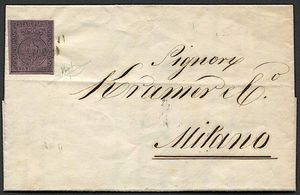 Signori
Kramer & Co.
Milano